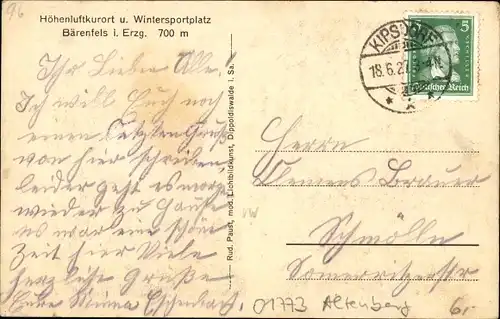 96
Höhenluftkurort u. Wintersportplatz
Bärenfels i. Erzg. 700 m
Ihr Lieben Alle.
Ich will Euch noch
einen letzten Gruß
von hier schreiben
leider geht es morgen
wieder zu Hause
es war eine schöne
Zeit hier Viele
herzliche Grüße
Eure Minna
Rud. Paust, mod. Lichtbildkunst, Dippoldiswalde i. Sa.
KIPSDORF
18.6.2
5
Deutsches Reich
Herrn
Clemens Brauer
Schmölln
Sommeritzerstr
01773 Altenberg
6,-